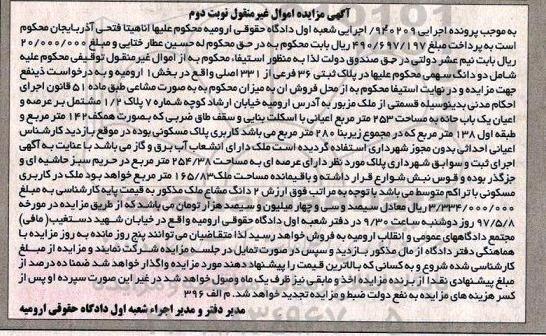 آگهی مزایده اموال غیرمنقول نوبت دوم
به موجب پرونده اجرایی ۹۴۰۲۰۹/ اجرایی شعبه اول دادگاه حقوقی ارومیه محکوم علیها آناهیتا فتحی آذربایجان محکوم
است به پرداخت مبلغ ۴۹۰/۶۹۷/۱۹۷ ریال بابت محکوم به در حق محکوم له حسین عطار ختایی و مبلغ ۲۰/۰۰۰/۰۰۰
ریال بابت نیم عشر دولتی در حق صندوق دولت لذا به منظور استیفاء محکوم به از اموال غیرمنقول توقیفی محکوم علیه
شامل دو دانگ سهمی محکوم علیها در پلاک ثبتی ۳۶ فرعی از ۳۳۱ اصلی واقع در بخش ۱ ارومیه و به درخواست ذینفع
جهت مزایده و در نهایت استیفا محکوم به از محل فروش ان به میزان محکوم به به صورت مشاعی طبق ماده ۵۱ قانون اجرای
احکام مدنی بدینوسیله قسمتی از ملک مزبور به آدرس ارومیه خیابان ارشاد کوچه شماره ۷ پلاک ۱/۲ مشتمل بر عرصه و
اعیان یک باب خانه به مساحت ۲۵۳ متر مربع اعیانی با اسکلت بنایی و سقف طاق ضربی که بصورت همکف ۱۴۲ متر مربع و
طبقه اول ۱۳۸ متر مربع که در مجموع زیربنا ۲۸۰ متر مربع می باشد کاربری پلاک مسکونی بوده در موقع بازدید کارشناس
اعیانی احداثی بدون مجوز شهرداری استفاده گردیده است ملک دارای انشعاب آب برق و گاز می باشد با عنایت به آگهی
اجرای ثبت و سوابق شهرداری پلاک مورد نظر دارای عرصه ای به مساحت ۲۵۴/۳۸ متر مربع در حریم سبز حاشیه ای و
جزگذر بوده و قوس نبش شوارع قرار داشته و باقیمانده مساحت ملک ۱۶۵/۸۳ متر مربع خواهد بود ملک در کاربری
مسکونی با تراکم متوسط می باشد با توجه به مراتب فوق ارزش ۲ دانگ مشاع ملک مذکور به قیمت پایه کارشناسی به مبلغ
۳/۳۳۴/۰۰۰/۰۰۰ ریال معادل سیصد و سی و چهار میلیون و سیصد هزار تومان می باشد که از طریق مزایده در مورخه
۹۷/۵/۸ روز دوشنبه ساعت ۹/۳۰ در دفتر شعبه اول دادگاه حقوقی ارومیه واقع در خیابان شهید دستغیب (مافی)
مجتمع دادگاههای عمومی و انقلاب ارومیه به فروش خواهد رسید لذا متقاضیان می توانند پنج روز مانده به روز مزایده با
هماهنگی دفتر دادگاه از مال مذکور بازدید و سپس در صورت تمایل در جلسه مزایده شرکت نمایند و مزایده از مبلغ
کارشناسی شده شروع و به کسانی که بالاترین قیمت را پیشنهاد دهند مورد مزایده واگذار خواهد شد ضمنا ده درصد از
مبلغ پیشنهادی نقدا از برنده مزایده اخذ و مابقی نیز ظرف یک ماه وصول خواهد شد در غیر این صورت سپرده او پس از
کسر هزینه های مزایده به نفع دولت ضبط و مزایده تجدید خواهد شد. م الف ۳۹۶
مدیر دفتر و مدیر اجراء شعبه اول دادگاه حقوقی ارومیه